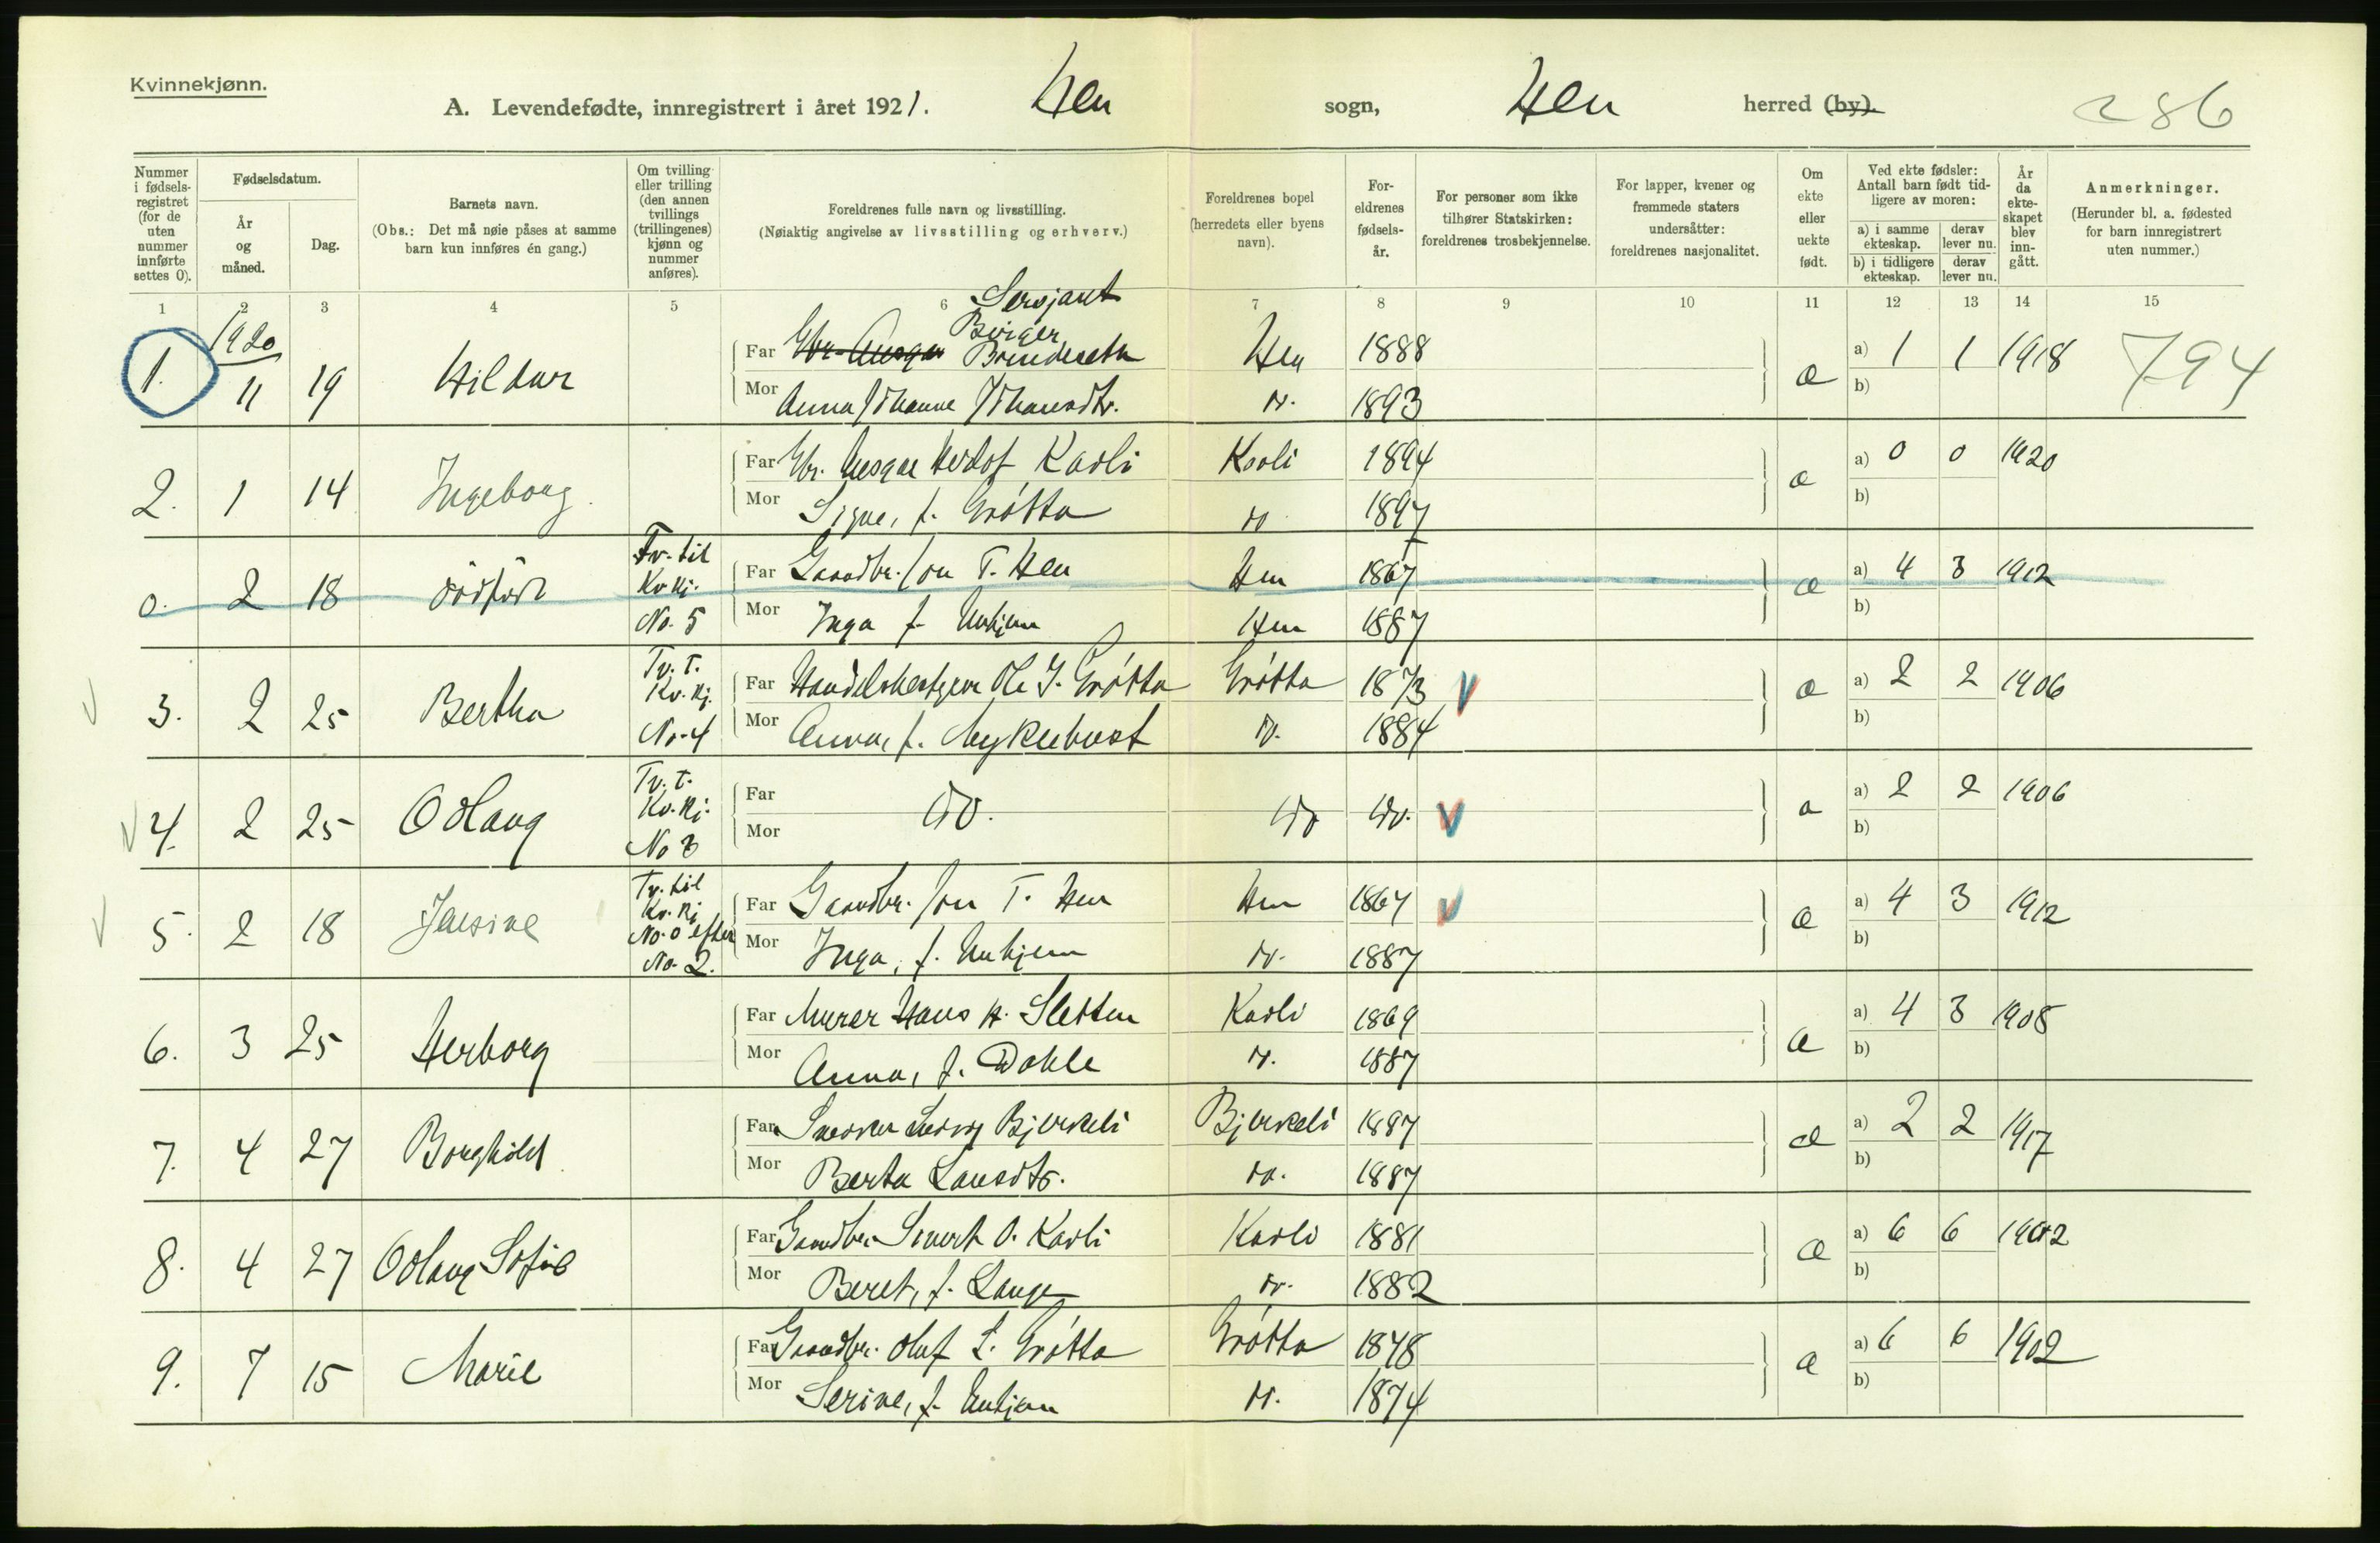 Kvinnekjønn.
A. Levendefødte, innregistrert i året 1921. Hen sogn, Hen herred (by). 286
Nummer i fødselsregistret (for de uten nummer innførte settes 0).
Fødselsdatum.
År og måned.
Dag.
Barnets navn.
(Obs.: Det må nøie påses at samme barn kun innføres én gang.)
Om tvilling eller trilling (den annen tvillings (trillingenes) kjønn og nummer anføres).
Foreldrenes fulle navn og livsstilling.
(Nøiaktig angivelse av livsstilling og erhverv.)
Foreldrenes bopel (herredets eller byens navn).
Foreldrenes fødselsår.
For personer som ikke tilhører Statskirken: foreldrenes trosbekjennelse.
For lapper, kvener og fremmede staters undersåtter: foreldrenes nasjonalitet.
Om ekte eller uekte født.
Ved ekte fødsler: Antall barn født tidligere av moren:
a) i samme ekteskap. derav lever nu.
b) i tidligere ekteskap. derav lever nu.
År da ekteskapet blev inngått.
Anmerkninger.
(Herunder bl. a. fødested for barn innregistrert uten nummer.)
1 2 3 4 5 6 7 8 9 10 11 12 13 14 15
Sersjant
1920 Birger
1. 11 19 Hildur Far Hen 1888 a) 1 1 1918 794
Mor Anna Johanne Johansdtr. do. 1893 b)
2. 1 14 Ingeborg Far Gbr. Herlof Kavli Kavli 1894 a) 0 0 1920
Mor Signe, f. Grøtta do 1897 b)
Tv. til
0. 2 18 dødfødt Kv.kj. Far Gaardbr. Jon T. Hen Hen 1867 a) 4 3 1912
No. 5 Mor Inga f. Unhjem Hen 1887 b)
Tv. t.
3. 2 25 Bertha Kv.kj. Far Ole J. Grøtta Grøtta 1873 V a) 2 2 1906
No. 4 Mor Anna, f. Myklebust do. 1884 b)
Tv. t.
4. 2 25 Odlaug Kv.kj. Far do. do do. V a) 2 2 1906
No 3 Mor b)
Tv. til
5. 2 18 Jensine Kv.kj Far Gaardbr. Jon T. Hen Hen 1867 V a) 4 3 1912
No. 0 efter
No. 2. Mor Inga, f. Unhjem do. 1887 b)
6. 3 25 Herborg Far Murer Hans H. Sletten Kavli 1869 a) 4 3 1908
Mor Anna, f. Dahle do. 1887 b)
7. 4 27 Borghild Far Bjerkeli Bjerkeli 1887 a) 2 2 1917
Mor Berta Larsdtr. do. 1887 b)
8. 4 27 Odlaug Sofie Far Gaardbr. Sivert O. Kavli Kavli 1881 a) 6 6 1902
Mor Beret, f. Lange do. 1882 b)
9. 7 15 Marie Far Gaardbr. Oluf L. Grøtta Grøtta 1878 a) 6 6 1902
Mor Serine, f. Unhjem do. 1874 b)